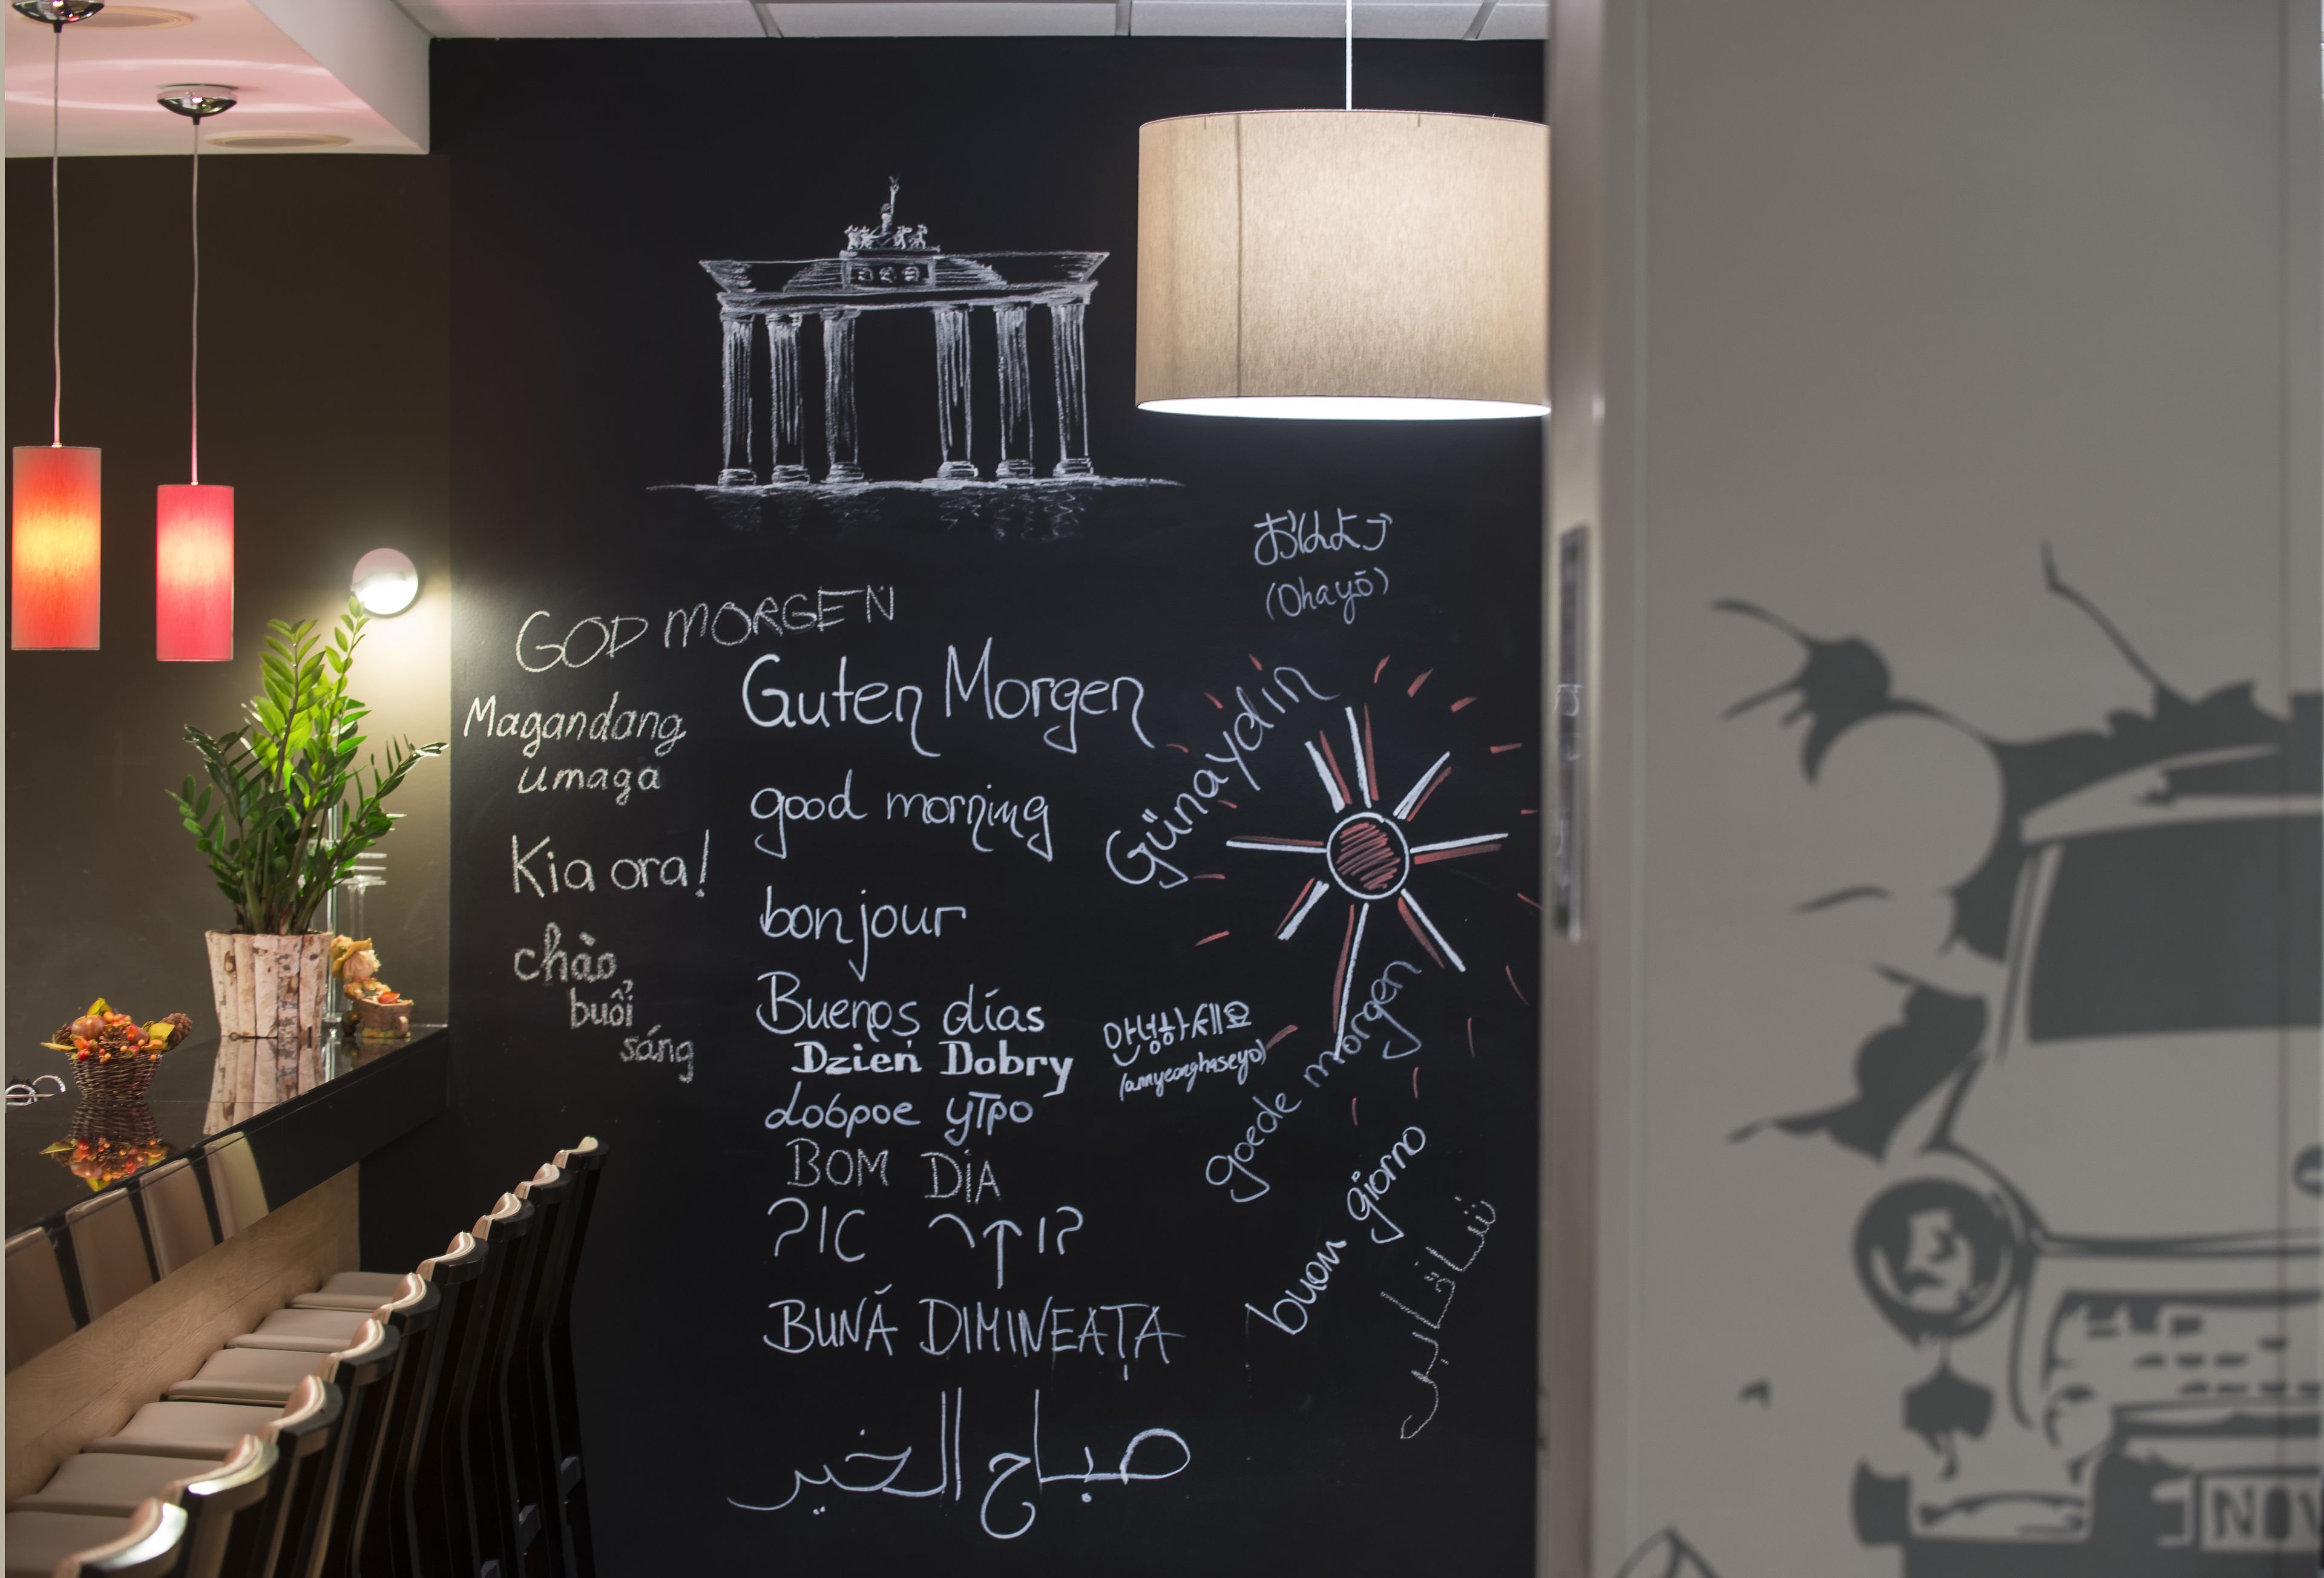 おはよう
(Ohayō)
GOD MORGEN
Guten Morgen
Günaydin
Magandang
umaga
good morning
Kia ora!
bonjour
chào
buổi
sáng
Buenos días
안녕하세요
(annyeonghaseyo)
Dzien Dobry
goede morgen
доброе утро
BOM DiA
buon giorno
בוקר טוב
BUNĂ DIMINEAȚA
صباح الخير